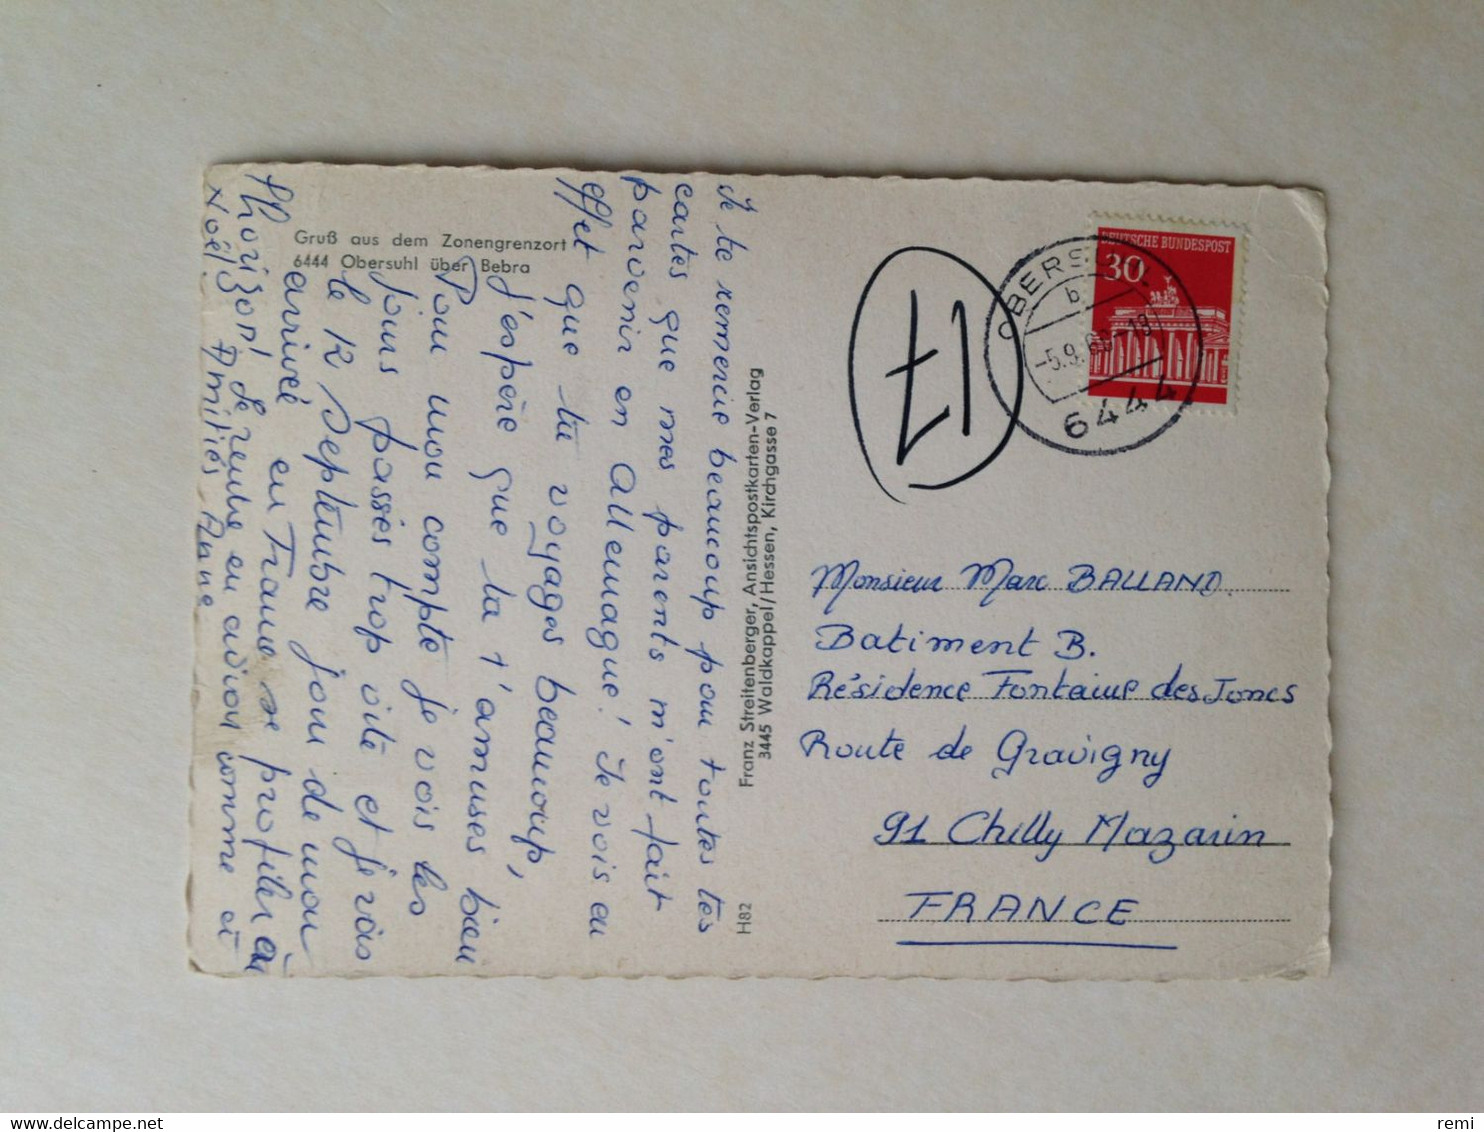 Gruß aus dem Zonengrenzort
6444 Obersuhl über Bebra
Je te remercie beaucoup pour toutes tes
cartes que mes parents m'ont fait
parvenir en Allemagne! Je vois en
effet que tu voyages beaucoup,
j'espère que tu t'amuses bien
Pour mon compte je vois les
jours passés trop vite et je vois
le 12 Septembre jour de mon
arrivée en France se profiler à
l'horizon! Je rentre en avion comme à
Noël. Amitiés Anne
Franz Streitenberger, Ansichtspostkarten-Verlag
3445 Waldkappel/Hessen, Kirchgasse 7
H82
17
DEUTSCHE BUNDESPOST
30
OBERSUHL
b
-5.9.68-18
6444
Monsieur Marc BALLAND
Batiment B.
Résidence Fontaine des Joncs
Route de Gravigny
91 Chilly Mazarin
FRANCE
www.delcampe.net
remi